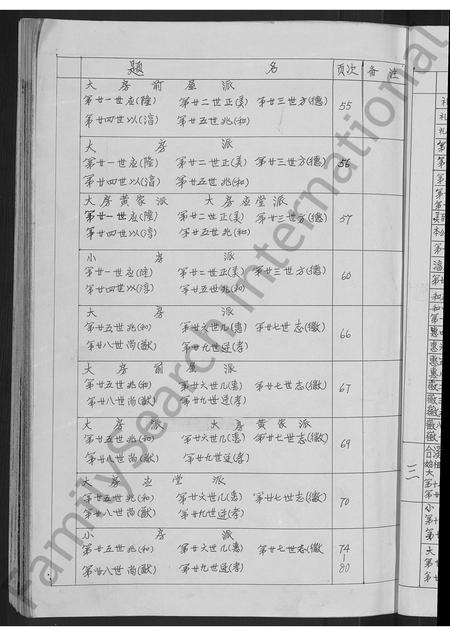 题 名 页次 备注
大房前屋派
第廿一世应(隆) 第廿二世正(美) 第廿三世方(德) 55
第廿四世以(淳) 第廿五世兆(和)
大房派
第廿一世应(隆) 第廿二世正(美) 第廿三世方(德) 56
第廿四世以(淳) 第廿五世兆(和)
大房黄家派 大房应堂派
第廿一世应(隆) 第廿二世正(美) 第廿三世方(德) 57
第廿四世以(淳) 第廿五世兆(和)
小房派
第廿一世应(隆) 第廿二世正(美) 第廿三世方(德) 60
第廿四世以(淳) 第廿五世兆(和)
大房派
第廿五世兆(和) 第廿六世几(惠) 第廿七世志(徽) 66
第廿八世尚(猷) 第廿九世逆(孝)
大房前屋派
第廿五世兆(和) 第廿六世几(惠) 第廿七世志(徽) 67
第廿八世尚(猷) 第廿九世逆(孝)
大房派 大房黄家派
第廿五世兆(和) 第廿六世几(惠) 第廿七世志(徽) 69
第廿八世尚(猷) 第廿九世逆(孝)
大房应堂派
第廿五世兆(和) 第廿六世几(惠) 第廿七世志(徽) 70
第廿八世尚(猷) 第廿九世逆(孝)
小房派
第廿五世兆(和) 第廿六世几(惠) 第廿七世志(徽) 74-80
第廿八世尚(猷) 第廿九世逆(孝)
FamilySearch International